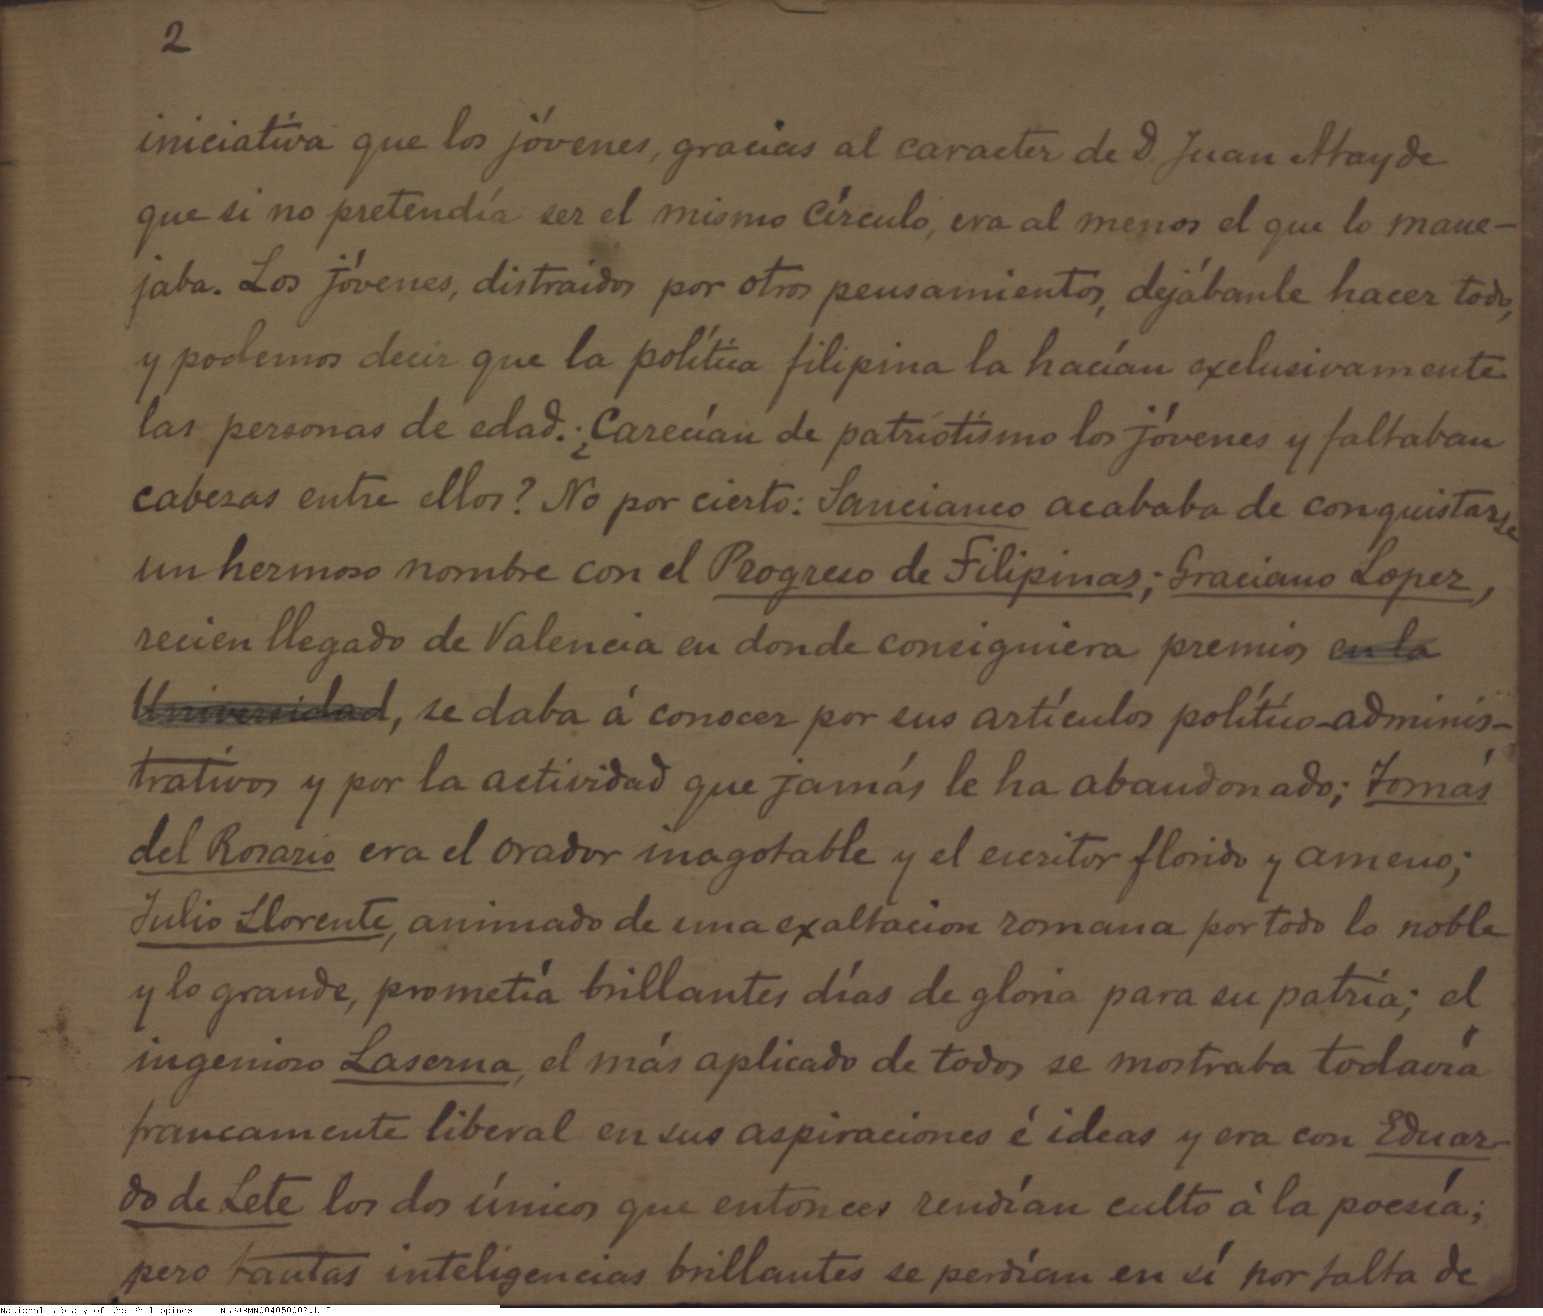 2
iniciativa que los jóvenes, gracias al caracter de D. Juan Atayde
que si no pretendía ser el mismo Círculo, era al menos el que lo mane-
jaba. Los jóvenes, distraidos por otros pensamientos, dejábanle hacer todo,
y podemos decir que la política filipina la hacían exclusivamente
las personas de edad. ¿Carecían de patriotismo los jóvenes y faltaban
cabezas entre ellos? No por cierto: Sancianco acababa de conquistarse
un hermoso nombre con el Progreso de Filipinas; Graciano Lopez,
recien llegado de Valencia en donde consiguiera premios en la
Universidad, se daba á conocer por sus artículos político-adminis-
trativos y por la actividad que jamás le ha abandonado; Tomás
del Rosario era el orador inagotable y el escritor florido y ameno;
Julio Llorente, animado de una exaltacion romana por todo lo noble
y lo grande, prometía brillantes días de gloria para su patria; el
ingenioso Laserna, el más aplicado de todos se mostraba todavía
francamente liberal en sus aspiraciones é ideas y era con Eduar-
do de Lete los dos únicos que entonces rendían culto á la poesía;
pero tantas inteligencias brillantes se perdían en sí por falta de
National Library of the Philippines